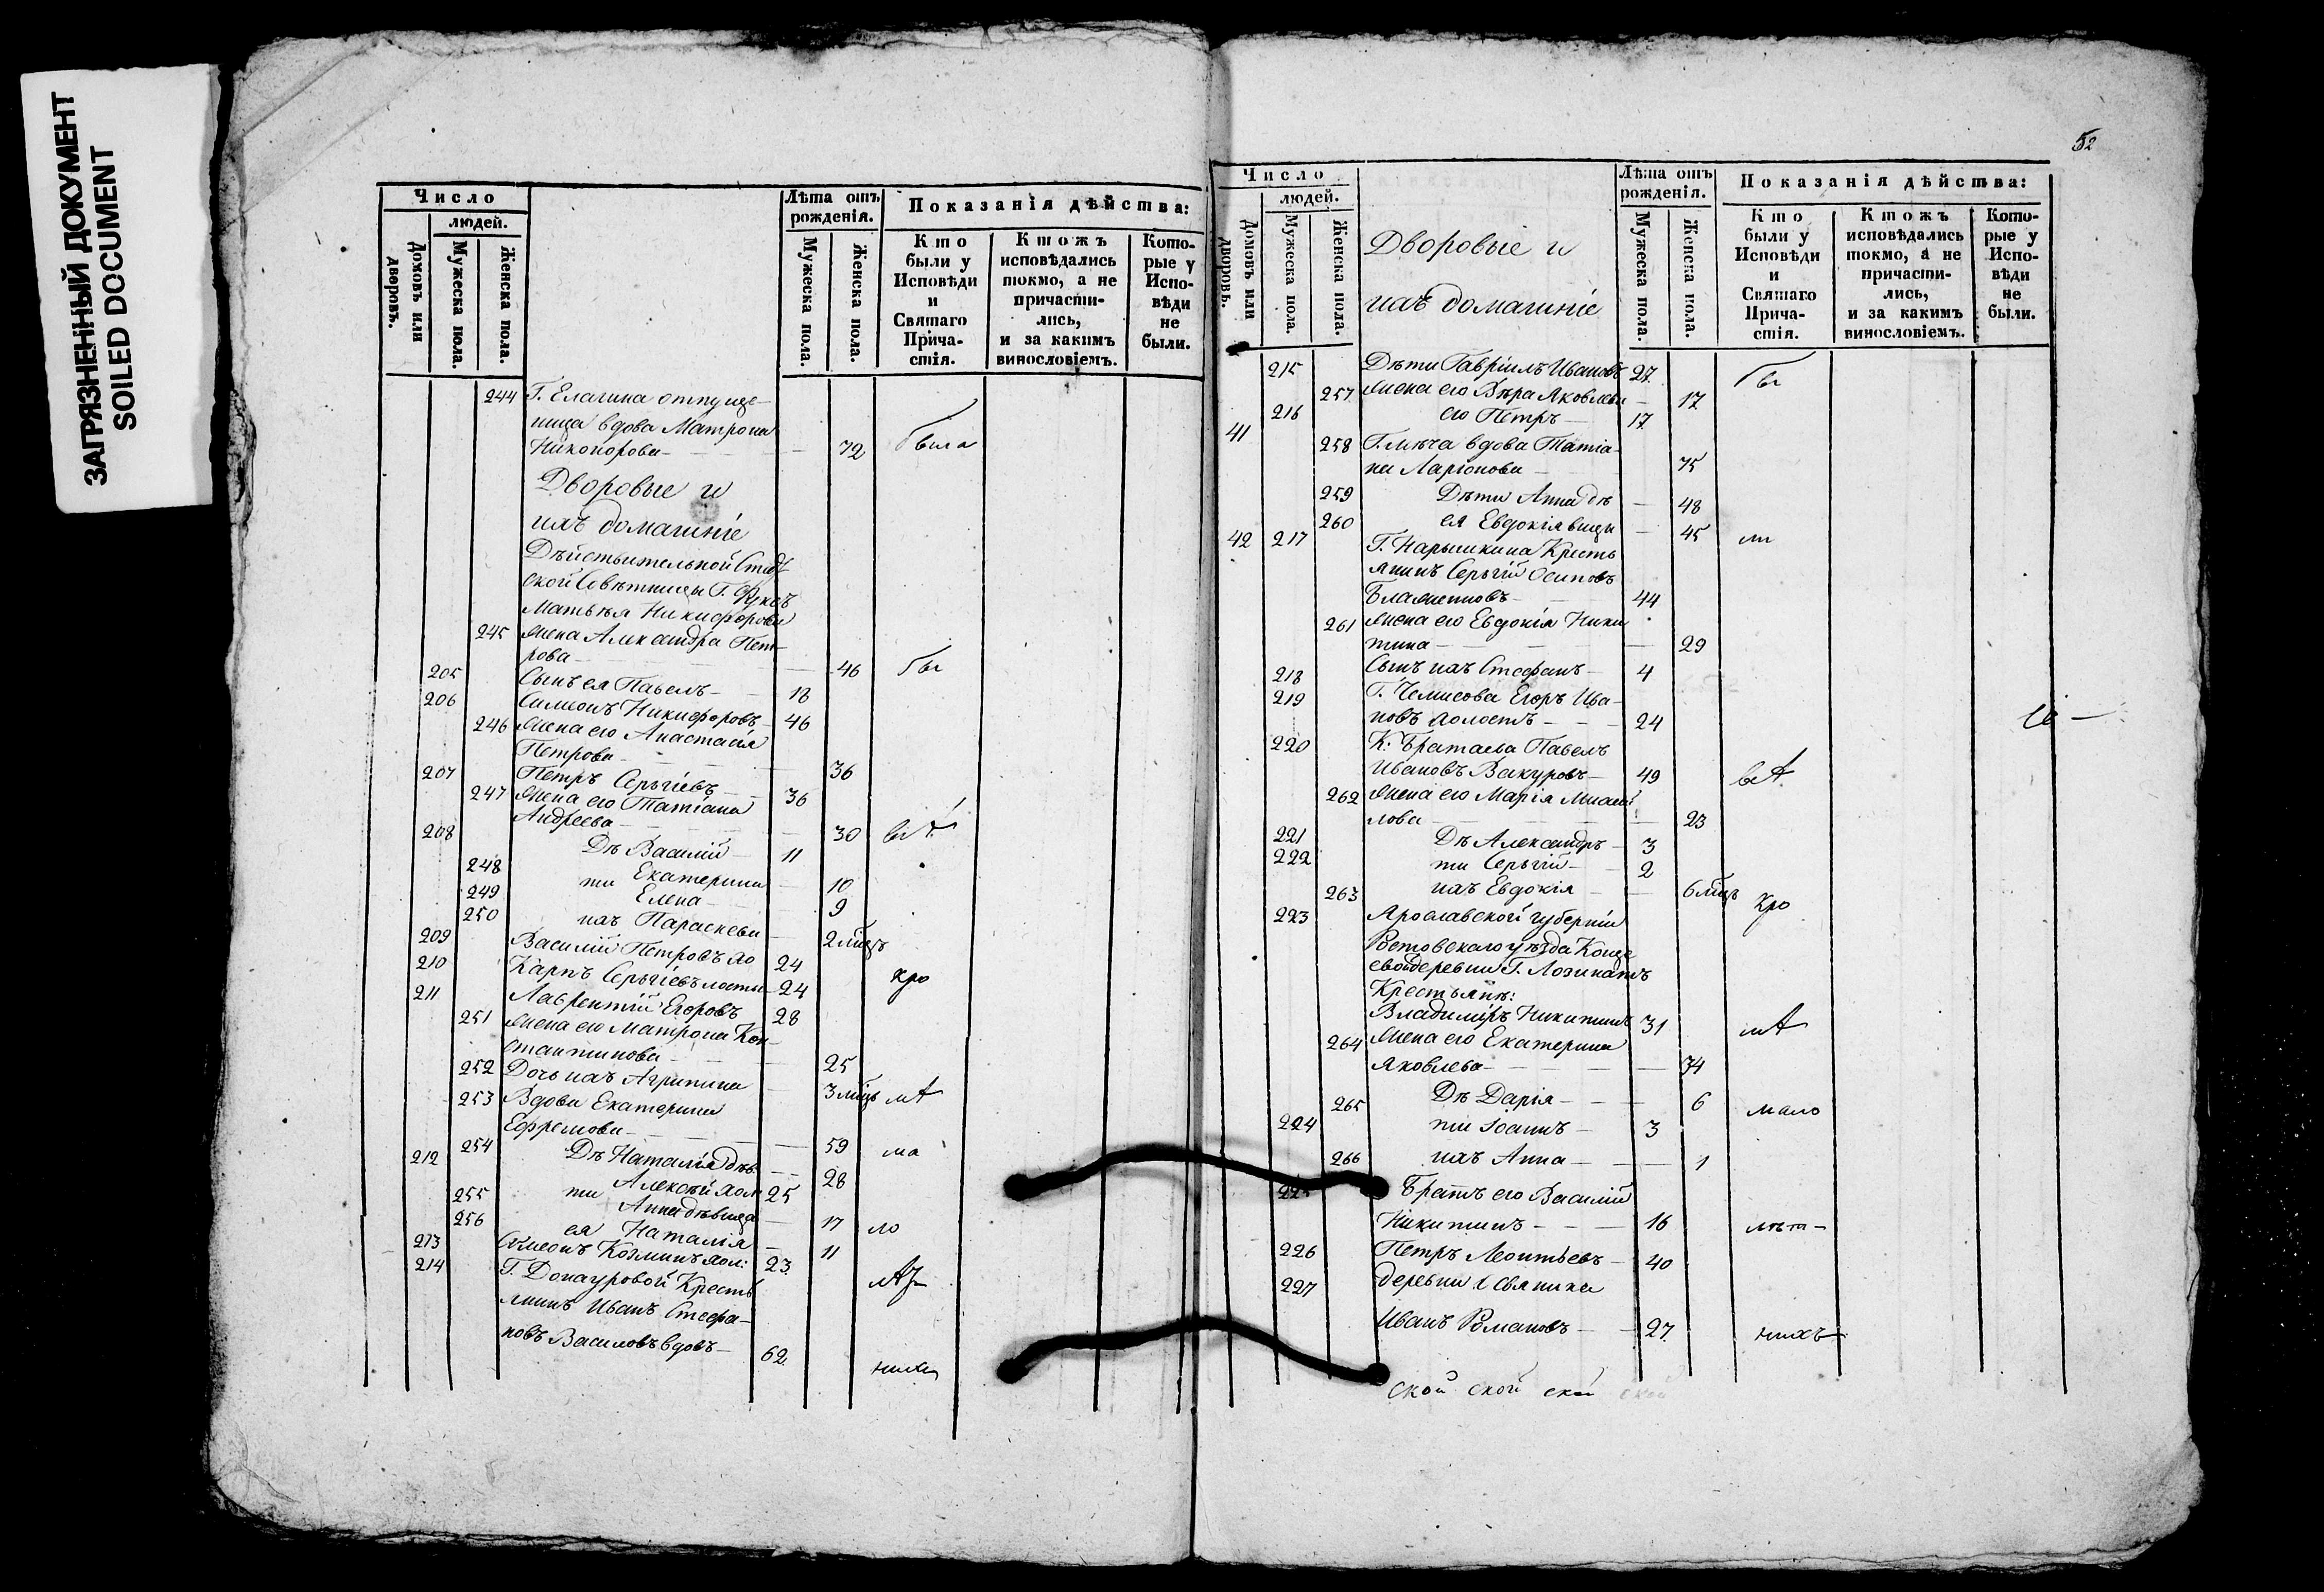 ЗАГРЯЗНЕННЫЙ ДОКУМЕНТ
SOILED DOCUMENT
Число
людей.
Домовъ или дворовъ.
Мужеска пола.
Женска пола.
Лѣта отъ рожденія.
Мужеска пола.
Женска пола.
Показанія дѣйства:
Кто были у Исповѣди и Святаго Прича-стія.
Ктожъ исповѣдались токмо, а не причасти-лись, и за какимъ винословіемъ.
Кото-рые у Испо-вѣди не были.
244 Г. Елагина отпуще-
ница вдова Матрона
Никонорова 72 была
Дворовые и
ихъ домашніе
Дѣйствительной Стат
ской Совѣтницы Г.
Матвѣя Никифорова
245 жена Александра Пет-
рова 46 бы
205 Сынъ ея Павелъ 18
206 Симеонъ Никифоровъ 46
246 жена его Анастасія
Петрова 36
207 Петръ Сергіевъ 36
247 жена его Татіана
Андреева 30
208 Дѣ Василій 11
248 ти Екатерина 10
249 Елена 9
250 ихъ Параскева 2 мѣцъ
209 Василій Петровъ хо 24
210 Карпъ Сергіевъ лосты 24 кро
211 Лаврентій Егоровъ 28
251 жена его Матрона Кон-
стантинова 25
252 Дочь ихъ Агрипина 3 мѣцъ
253 Вдова Екатерина
Ефремова 59 ма
254 Дѣ Наталія дѣв: 28
212 ти Алексѣй хол 25
255 Анна дѣвица 17 ло
256 ея Наталія 11
213 Симеонъ Козминъ хол: 23
214 Г. Донауровой Кресть
янинъ Иванъ Стефа-
новъ Василовъ вдовъ 62
52
Число
людей.
Домовъ или дворовъ.
Мужеска пола.
Женска пола.
Дворовые и
ихъ домашніе
Лѣта отъ рожденія.
Мужеска пола.
Женска пола.
Показанія дѣйства:
Кто были у Исповѣди и Святаго Прича-стія.
Ктожъ исповѣдались токмо, а не причасти-лись, и за какимъ винословіемъ.
Кото-рые у Испо-вѣди не были.
215 Дѣти Гавріилъ Ивановъ 27 бы
257 жена его Вѣра Яковлева 17
216 его Петръ 17
41 258 вдова Татіа-
на Ларіонова 75
259 Дѣти Анна дѣ 48
260 ея Евдокія вицы 45 ли
42 217 Г. Нарышкина Кресть
янинъ Сергій Осиповъ
44
261 жена его Евдокія Ники
тина 29
218 Сынъ ихъ Стефанъ 4
219 Егоръ Ива-
новъ холостъ 24
220 Павелъ
Ивановъ Вакуровъ 49
262 жена его Марія Михай
лова 23
221 Дѣ Александръ 3
222 ти Сергій 2
263 ихъ Евдокія 6 мѣцъ кро
223 Ярославской губерніи
Ростовскаго уѣзда
деревни Г.
Крестьяне:
Владиміръ Никитинъ 31
264 жена его Екатерина
Яковлева 34
265 Дѣ Дарія 6 мало
224 ти Іоаннъ 3
266 ихъ Анна 1
225 Братъ его Василій
Никитинъ 16 лѣт
226 Петръ Леонтьевъ 40
227 деревни
Иванъ Романовъ 27 нихъ
ской ской ской ской